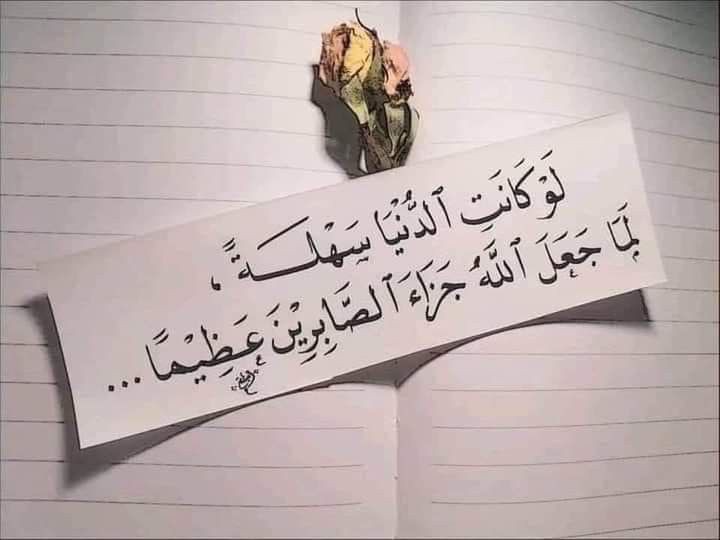 لَوْ كَانَتِ ٱلدُّنْيَا سَهْلَـةً ،
لَمَا جَعَلَ ٱللَّهُ جَزَاءَ ٱلصَّابِرِيْنَ عَظِيْمًا ...